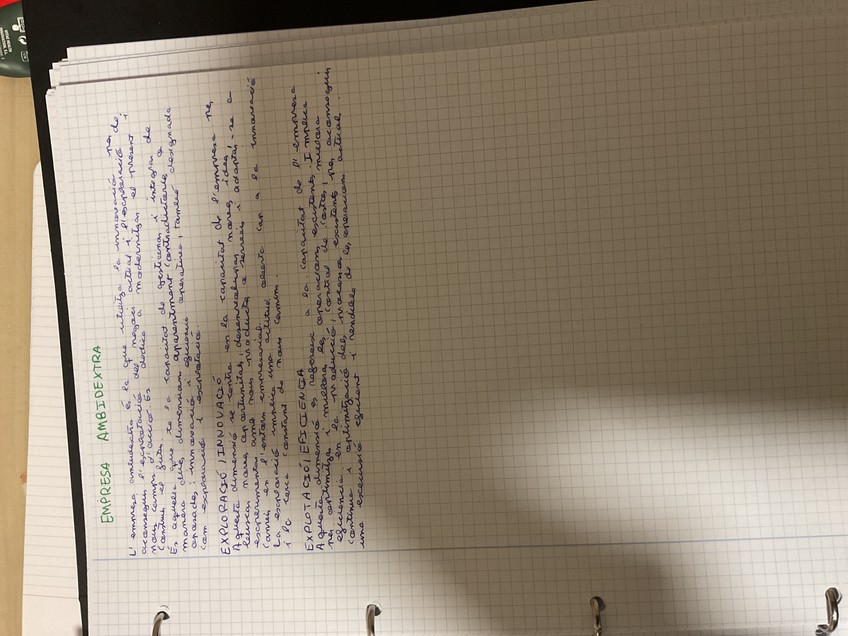 EMPRESA AMBIDEXTRA
L'empresa ambidextra és la que utilitza la innovació per
aconseguir l'explotació del negoci actual i l'exploració de
nous camps d'acció. Es dedica a modernitzar el present i
construir el futur.
És aquella que té la capacitat de gestionar i integrar de
manera dues dimensions aparentment contradictòries o
oposades: innovació i eficiència operativa, també designada
com exploració i explotació.
EXPLORACIÓ / INNOVACIÓ
Aquesta dimensió se centra en la capacitat de l'empresa per
buscar noves oportunitats, desenvolupar noves idees,
experimentar amb nous productes o serveis i adaptar-se a
canvis en l'entorn empresarial.
La exploració implica una actitud oberta cap a la innovació
i la cerca constant de nous camins.
EXPLOTACIÓ / EFICIENCIA
Aquesta dimensió es refereix a la capacitat de l'empresa
per optimitzar i millorar les operacions existents. Implica
eficiencia en la producció, control de costos, millora
contínua i optimització dels processos existents per aconseguir
una execució eficient i rendible de les operacions actuals.